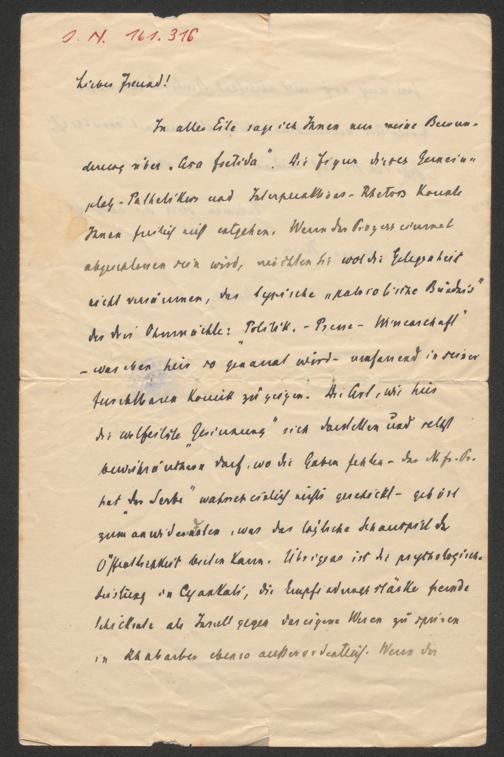 I. N. 161.316
Lieber Freund!
In aller Eile sage ich Ihnen nur meine Bewun-
derung über „Asa foetida". Die Figur dieses Gemein-
platz-Pathetikers und Interpunktions-Rhetors konnte
Ihnen freilich nicht entgehen. Wenn der Prozess einmal
abgeschlossen sein wird, möchten Sie wol die Gelegenheit
nicht versäumen, das typische „patriotische Bündnis"
der drei Ohnmächte: Politik. - Presse - Wissenschaft"
- was eben hier so "genannt wird - umfassend in seiner
furchtbaren Komik zu zeigen. Die Art, wie hier
die wolfeilste "Gesinnung" sich darstellen und selbst
beweihräuchern darf, wo die Gaben fehlen - der N. fr. Pr.
hat "der Serbe" wahrscheinlich nichts geschickt - gehört
zum anwiderndsten, was das tägliche Schauspiel der
Öffentlichkeit bieten kann. Übrigens ist die psychologische
Leistung in Cyankali, die Empfindungsstärke fremde
Schicksale als Insult gegen das eigene Wesen zu spüren
in Rhabarber ebenso außerordentlich. Wenn der